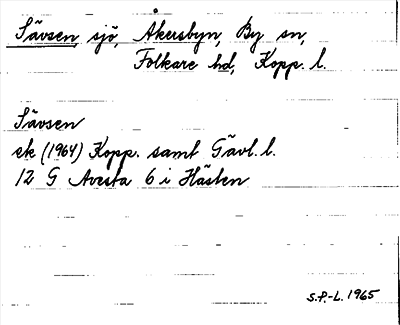 Sävsen, sjö, Åkersbyn, By sn,
Folkare hd, Kopp. l.
Sävsen
ek (1964) Kopp. samt Gävl. l.
12 G Avesta 6 i Hästen
S.P-L. 1965